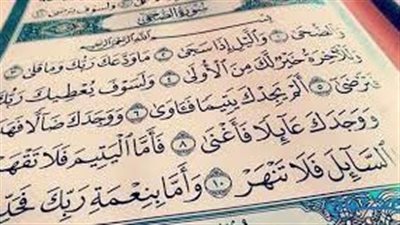 سُورَةُ الضُّحَىٰ
بِسْمِ ٱللَّهِ ٱلرَّحْمَٰنِ ٱلرَّحِيمِ
وَٱلضُّحَىٰ ١ وَٱلَّيْلِ إِذَا سَجَىٰ ٢ مَا وَدَّعَكَ رَبُّكَ وَمَا قَلَىٰ ٣
وَلَلْأَخِرَةُ خَيْرٌ لَّكَ مِنَ ٱلْأُولَىٰ ٤ وَلَسَوْفَ يُعْطِيكَ رَبُّكَ
فَتَرْضَىٰٓ ٥ أَلَمْ يَجِدْكَ يَتِيمًا فَـَٔاوَىٰ ٦ وَوَجَدَكَ ضَآلًّا
وَوَجَدَكَ عَآئِلًا فَأَغْنَىٰ ٨ فَأَمَّا ٱلْيَتِيمَ فَلَا تَقْهَ
ٱلسَّآئِلَ فَلَا تَنْهَرْ ١٠ وَأَمَّا بِنِعْمَةِ رَبِّكَ فَحَدِّ